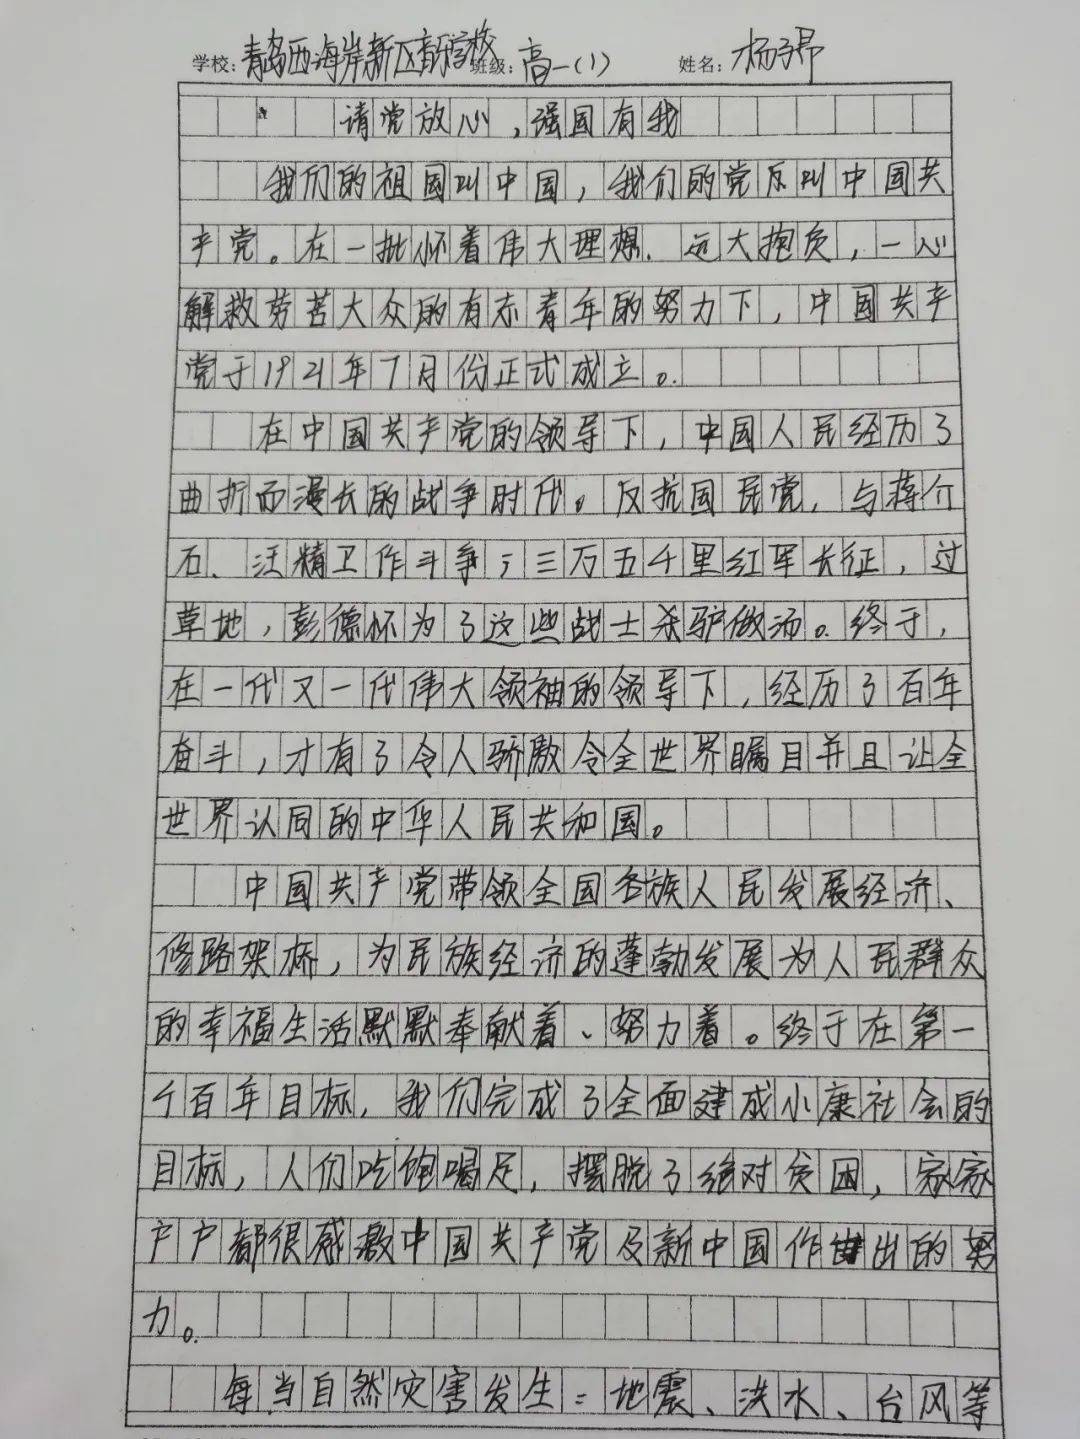 学校：青岛西海岸新区育才学校 班级：高一(1) 姓名：杨子昂
请党放心，强国有我
我们的祖国叫中国，我们的党反叫中国共
产党。在一批怀着伟大理想、远大抱负，一心
解救劳苦大众的有志青年的努力下，中国共产
党于1921年7月份正式成立。
在中国共产党的领导下，中国人民经历了
曲折而漫长的战争时代。反抗国民党，与蒋介
石、汪精卫作斗争；三万五千里红军长征，过
草地，彭德怀为了这些战士杀驴做汤。终于，
在一代又一代伟大领袖的领导下，经历了百年
奋斗，才有了令人骄傲令全世界瞩目并且让全
世界认同的中华人民共和国。
中国共产党带领全国各族人民发展经济、
修路架桥，为民族经济的蓬勃发展为人民群众
的幸福生活默默奉献着、努力着。终于在第一
个百年目标，我们完成了全面建成小康社会的
目标，人们吃饱喝足，摆脱了绝对贫困，家家
户户都很感激中国共产党及新中国作出的努
力。
每当自然灾害发生：地震、洪水、台风等